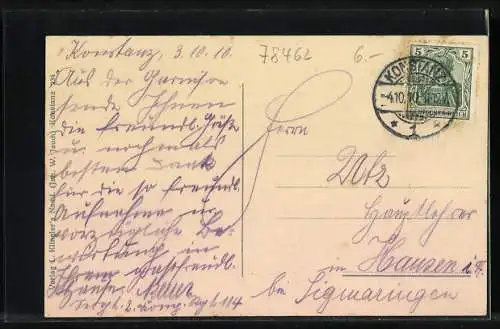 Konstanz, 3.10.10.
78462
6.-
Aus der Garnison
sende Ihnen
die freundl. Grüße
u. nochmals
besten Dank
für die so freundl.
Aufnahme u.
vorzügliche Be-
wirtung in
Ihrem gastfreundl.
Hause.
2. Komp. Rgt. 114
Herrn
Dotz
Hauptlehrer
in Hausen i. T.
bei Sigmaringen
5 5
KONSTANZ
4.10.10.
* 1 *
Verlag L. Klingler's Nachf. (Inh. W. Jauch) Konstanz